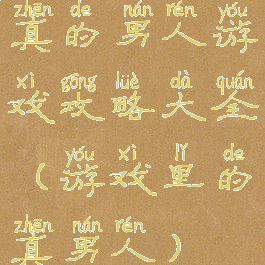 zhēn de nán rén yóu
真的男人游
xì gōng lüè dà quán
戏攻略大全
yóu xì lǐ de
（游戏里的
zhēn nán rén
真男人）